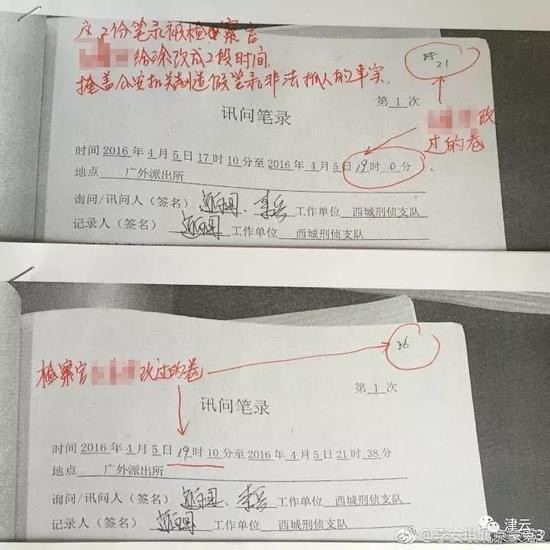 这2份笔录被检察官
给涂改成2段时间.
掩盖公安机关制造假笔录非法抓人的事实
21
第 1 次
讯问笔录
改
过的卷
时间 2016 年 4 月 5 日 17 时 10 分至 2016 年 4 月 5 日 19 时 0 分
地点 广外派出所
询问/讯问人（签名） 工作单位 西城刑侦支队
记录人（签名） 工作单位 西城刑侦支队
26
检察官 改过的卷
第 1 次
讯问笔录
时间 2016 年 4 月 5 日 19 时 10 分至 2016 年 4 月 5 日 21 时 38 分
地点 广外派出所
询问/讯问人（签名） 工作单位 西城刑侦支队
记录人（签名） 工作单位 西城刑侦支队
津云